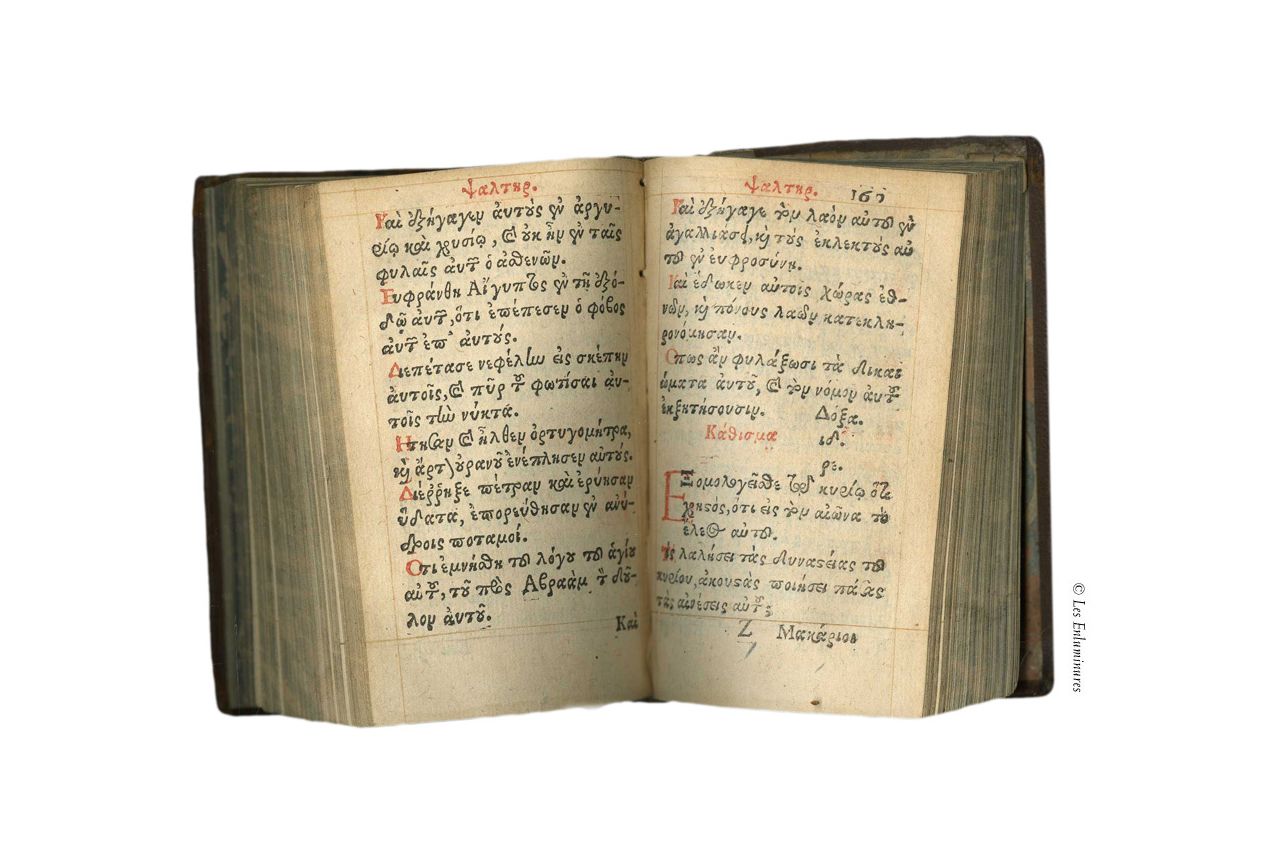 ψαλτηρ.
Καὶ ἐξήγαγεν ἀυτοὺς ἐν ἀργυ-
ρίῳ καὶ χρυσίῳ, καὶ ὀυκ ἦν ἐν ταῖς
φυλαῖς ἀυτῶν ὁ ἀσθενῶν.
Ευφράνθη Αἴγυπτος ἐν τῇ ἐξό-
δῳ ἀυτῶν, ὅτι ἐπέπεσεν ὁ φόβος
ἀυτῶν ἐπ' ἀυτούς.
Διεπέτασε νεφέλην εἰς σκέπην
ἀυτοῖς, καὶ πῦρ τοῦ φωτίσαι ἀυ-
τοῖς τὴν νύκτα.
Ητησαν καὶ ἦλθεν ὀρτυγομήτρα,
καὶ ἄρτον οὐρανοῦ ἐνέπλησεν αυτούς.
Διέῤῥηξε πέτραν καὶ ἐρύησαν
ὕδατα, ἐπορεύθησαν ἐν ἀνύ-
δροις ποταμοί.
Οτι ἐμνήσθη τοῦ λόγου τοῦ ἁγίου
αὐτοῦ, τοῦ πρὸς Αβραὰμ τὸν δοῦ-
λον ἀυτοῦ.
Καὶ
ψαλτηρ. 161
Καὶ ἐξήγαγε τὸν λαὸν αὐτοῦ ἐν
ἀγαλλιάσει, καὶ τοὺς ἐκλεκτοὺς αὐ
τοῦ ἐν ἐυφροσύνῃ.
Καὶ ἔδωκεν αὐτοῖς χώρας ἐθ-
νῶν, καὶ πόνους λαῶν κατεκλη-
ρονόμησαν.
Οπως ἂν φυλάξωσι τὰ δικαι
ώματα ἀυτοῦ, καὶ τὸν νόμον ἀυτοῦ
ἐκζητήσουσιν. Δόξα.
Κάθισμα ιδ.
ρε.
Εξομολογεῖσθε τῷ κυρίῳ ὅτι
χρηστός, ὅτι εἰς τὸν αἰῶνα τὸ
ἔλεος αὐτοῦ.
Τίς λαλήσει τὰς δυναστείας τοῦ
κυρίου, ἀκουστὰς ποιήσει πάσας
τὰς αἰνέσεις αὐτοῦ;
Z Μακάριοι
© Les Enluminures